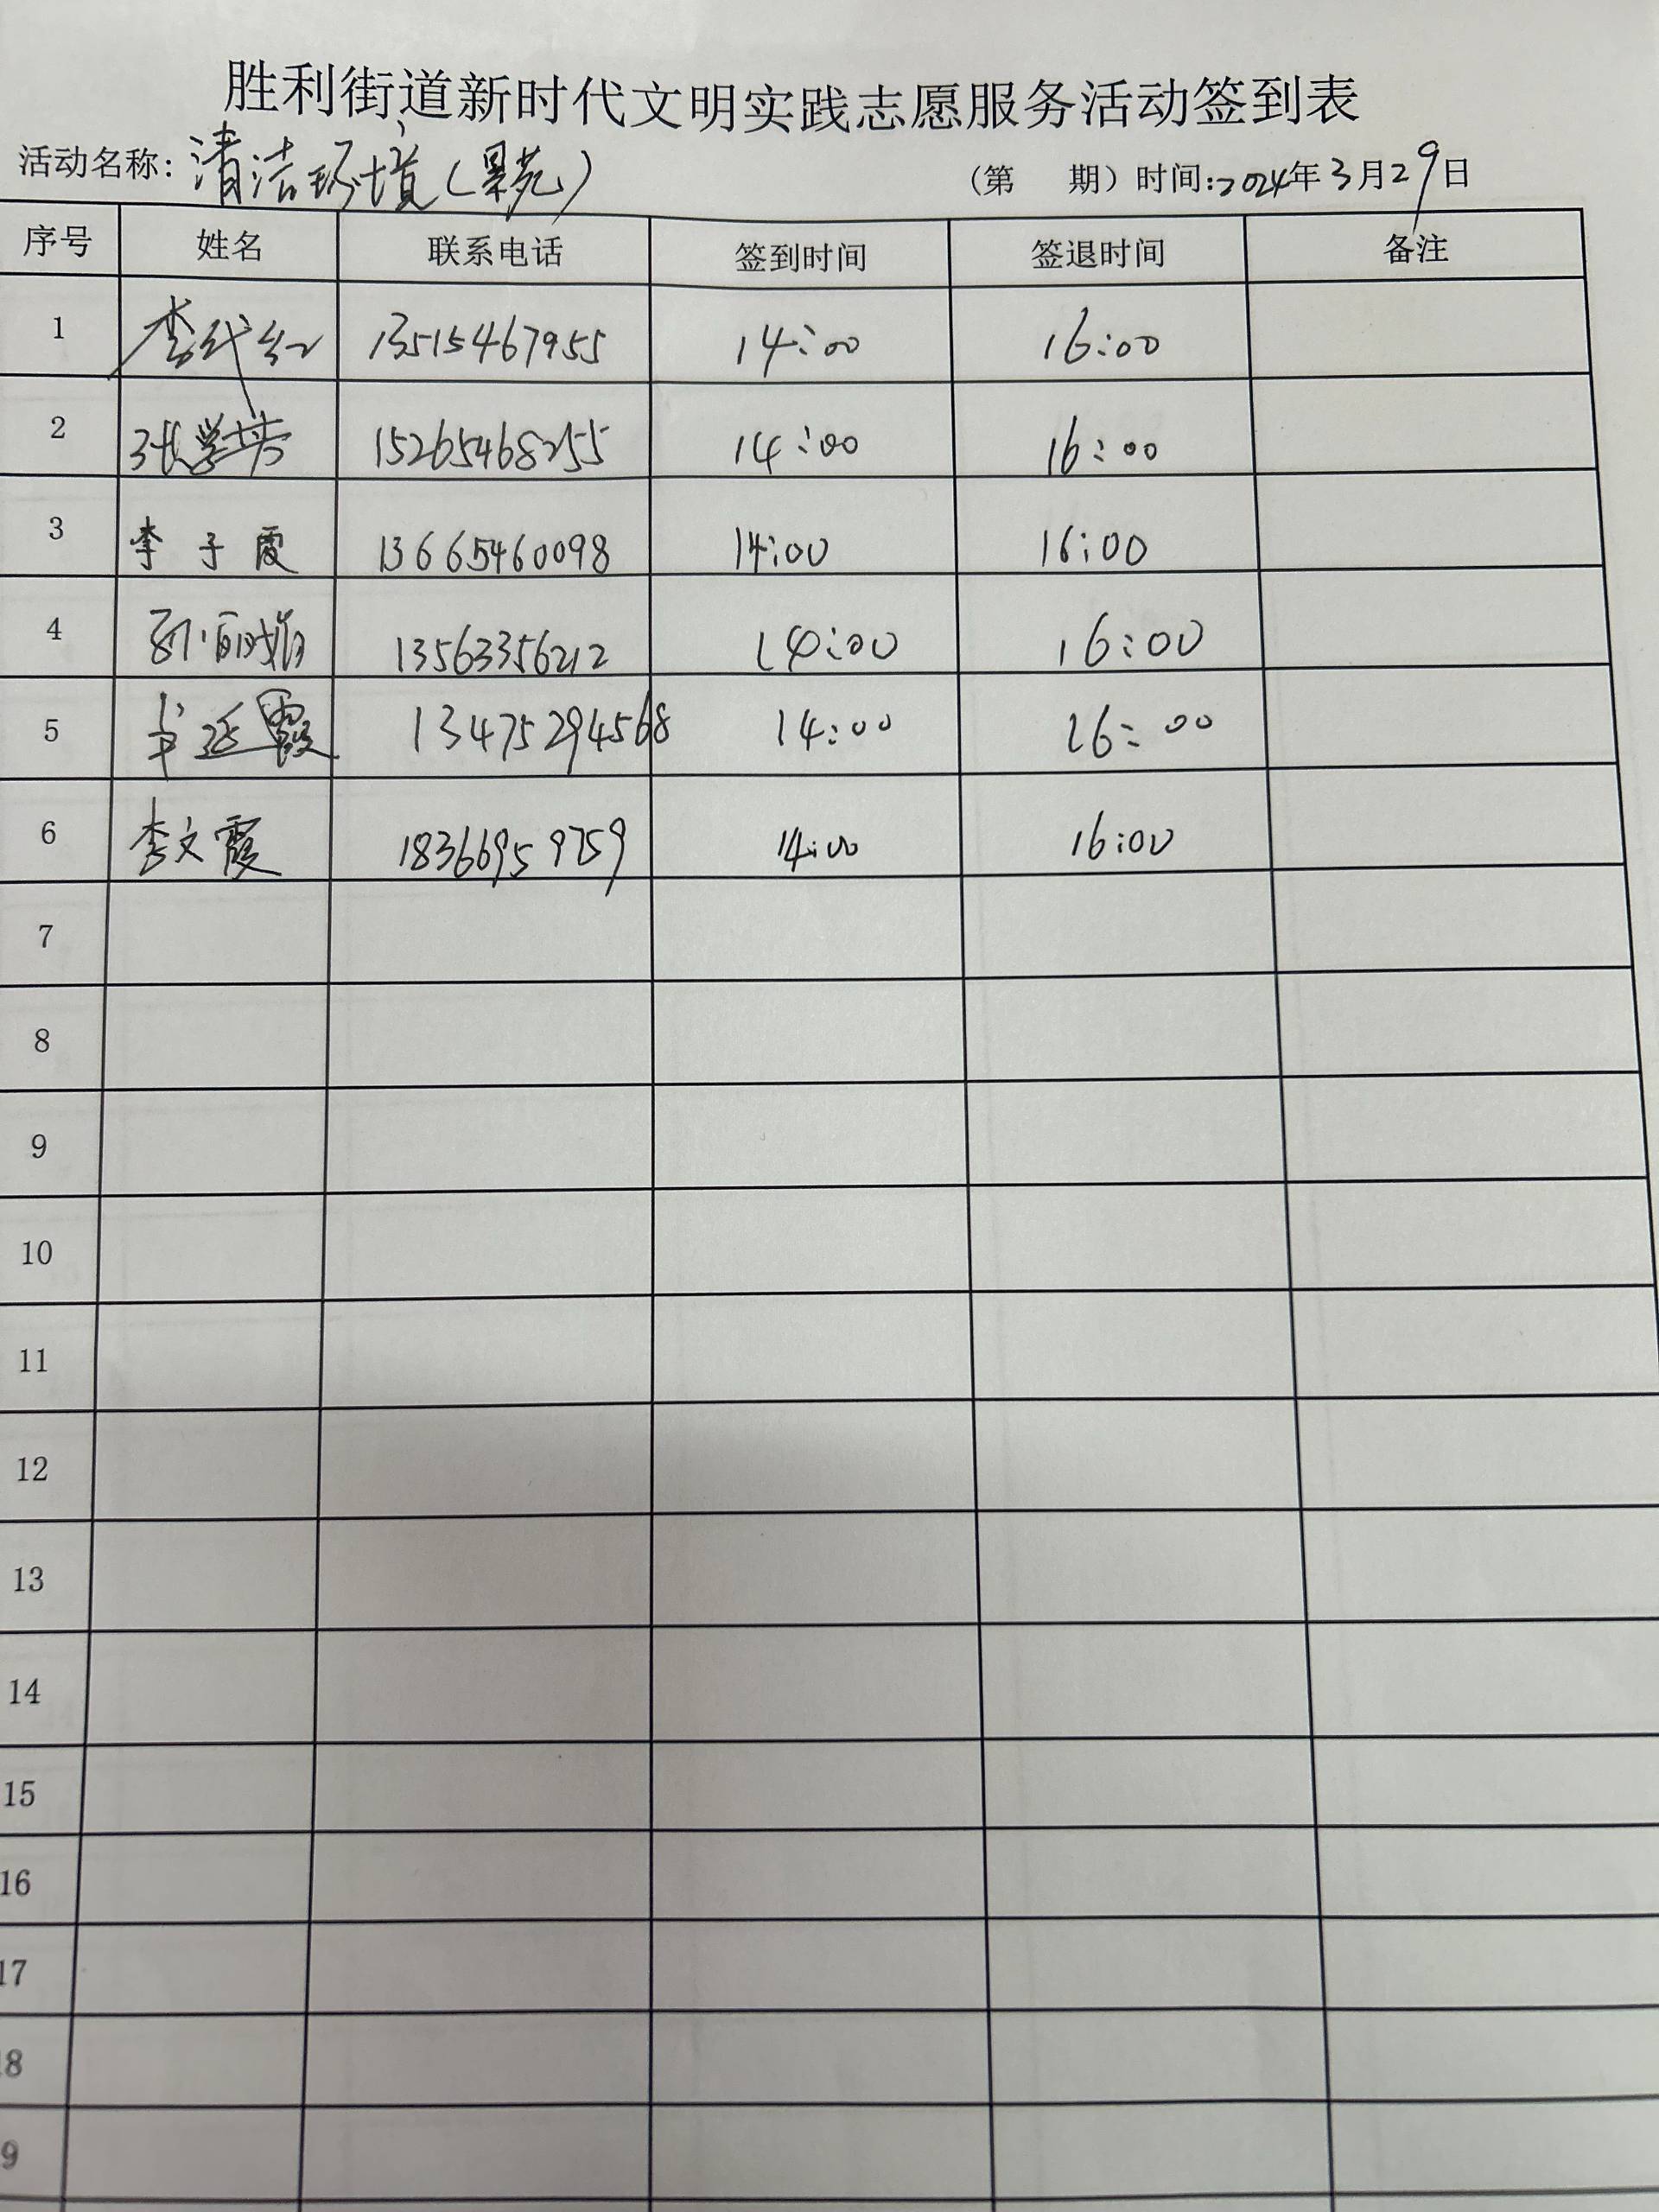 胜利街道新时代文明实践志愿服务活动签到表
活动名称：清洁环境（景苑） （第 期）时间：2024年3月29日
序号 姓名 联系电话 签到时间 签退时间 备注
1 李代红 13515467955 14:00 16:00
2 张学芳 15265468255 14:00 16:00
3 李子霞 13665460098 14:00 16:00
4 13563356212 14:00 16:00
5 延霞 13475294568 14:00 16:00
6 李文霞 18366959759 14:00 16:00
7
8
9
10
11
12
13
14
15
16
17
18
9